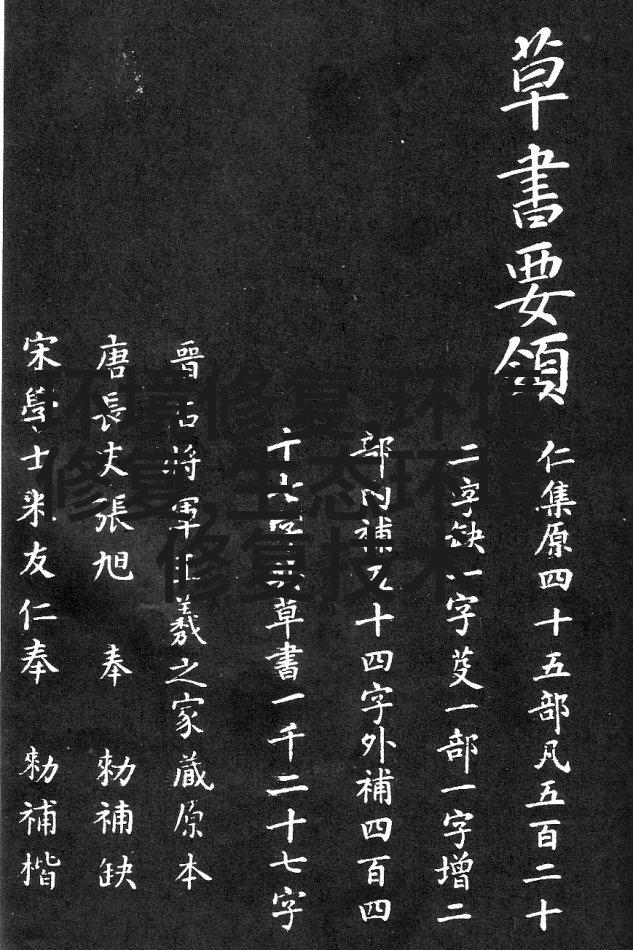 草書要領
仁集原四十五部凡五百二十
二字缺一字芟一部一字增二
部内補九十四字外補四百四
十六草書一千二十七字
晉右將軍王羲之家藏原本
唐長史張旭 奉 勑補缺
宋學士米友仁奉 勑補楷
环境修复 环境
修复 生态环境
修复技术